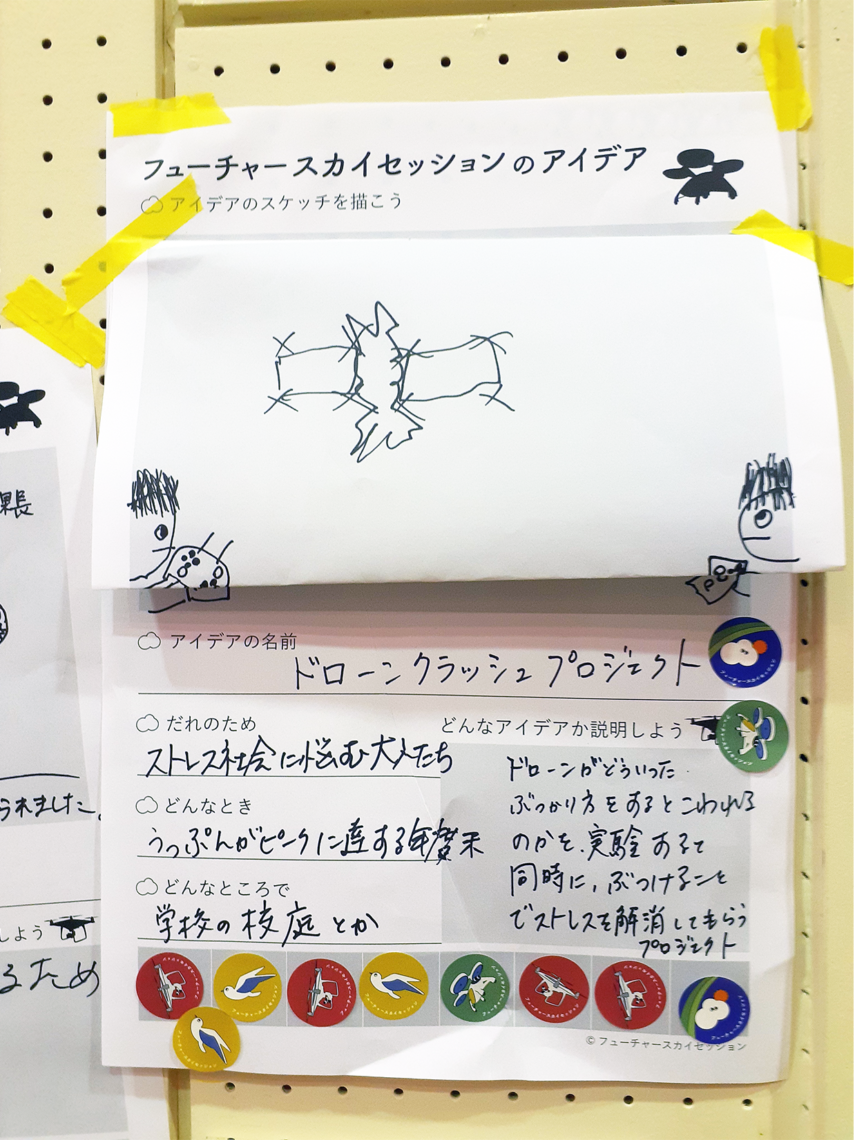 フューチャースカイセッションのアイデア
アイデアのスケッチを描こう
アイデアの名前
ドローンクラッシュプロジェクト
だれのため
ストレス社会に悩む大人たち
どんなとき
うっぷんがピークに達する年度末
どんなところで
学校の校庭とか
どんなアイデアか説明しよう
ドローンがどういった
ぶつかり方をするとこわれる
のかを、実験すると
同時に、ぶつけること
でストレスを解消してもらう
プロジェクト
© フューチャースカイセッション
課長
られました。
しよう
るため